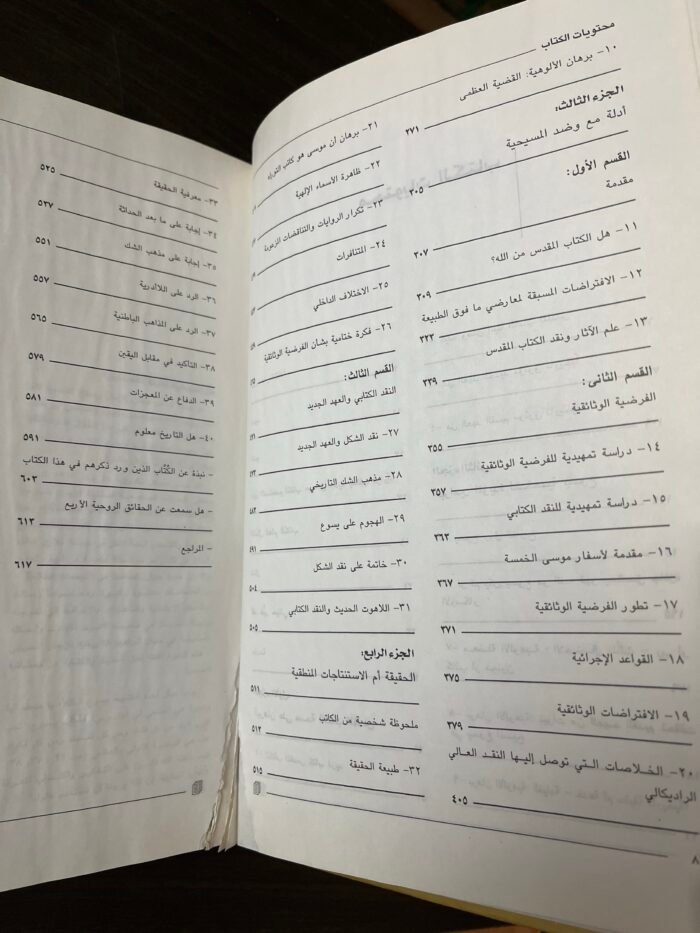 محتويات الكتاب
١٠- برهان الألوهية: القضية العظمى
٢٧١
الجزء الثالث:
أدلة مع وضد المسيحية
٣٠٥
القسم الأول:
مقدمة
٣٠٧
١١- هل الكتاب المقدس من الله؟
٣٠٩
١٢- الافتراضات المسبقة لمعارضي ما فوق الطبيعة
٣٢٣
١٣- علم الآثار ونقد الكتاب المقدس
٣٣٩
القسم الثانى:
الفرضية الوثائقية
٣٥٥
١٤- دراسة تمهيدية للفرضية الوثائقية
٣٥٧
١٥- دراسة تمهيدية للنقد الكتابي
٣٦٣
١٦- مقدمة لأسفار موسى الخمسة
٣٦٧
١٧- تطور الفرضية الوثائقية
٣٧١
١٨- القواعد الإجرائية
٣٧٥
١٩- الافتراضات الوثائقية
٣٧٩
٢٠- الخلاصات التي توصل إليها النقد العالي
الراديكالي
٤٠٥
٢١- برهان أن موسى هو كاتب التوراه
٢٢- ظاهرة الأسماء الإلهية
٢٣- تكرار الروايات والتناقضات المزعومة
٢٤- المتنافرات
٢٥- الاختلاف الداخلي
٢٦- فكرة ختامية بشأن الفرضية الوثائقية
القسم الثالث:
النقد الكتابي والعهد الجديد
٢٧- نقد الشكل والعهد الجديد
٢٨- مذهب الشك التاريخي
٢٩- الهجوم على يسوع
٣٠- خاتمة على نقد الشكل
٥٠٤
٣١- اللاهوت الحديث والنقد الكتابي
٥٠٥
الجزء الرابع:
الحقيقة أم الاستنتاجات المنطقية
٥١١
ملحوظة شخصية من الكاتب
٥١٢
٣٢- طبيعة الحقيقة
٥١٥
٨
٣٣- معرفية الحقيقة
٥٢٥
٣٤- إجابة على ما بعد الحداثة
٥٣٧
٣٥- إجابة على مذهب الشك
٥٥١
٣٦- الرد على اللاأدرية
٥٥٧
٣٧- الرد على المذاهب الباطنية
٥٦٥
٣٨- التأكيد في مقابل اليقين
٥٧٩
٣٩- الدفاع عن المعجزات
٥٨١
٤٠- هل التاريخ معلوم
٥٩١
- نبذة عن الكُتَّاب الذين ورد ذكرهم في هذا الكتاب
٦٠٣
- هل سمعت عن الحقائق الروحية الأربع
٦١٣
- المراجع
٦١٧